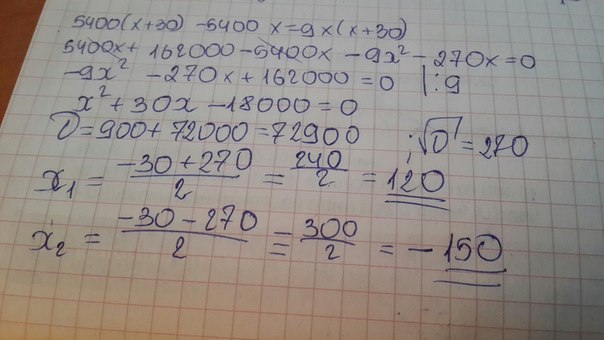 5400(x+30) -5400x=9x(x+30)
5400x+162000-5400x-9x²-270x=0
-9x²-270x+162000=0 |:9
x²+30x-18000=0
D=900+72000=72900 ; √D=270
x₁ = (-30+270)/2 = 240/2 = 120
x₂ = (-30-270)/2 = -300/2 = -150